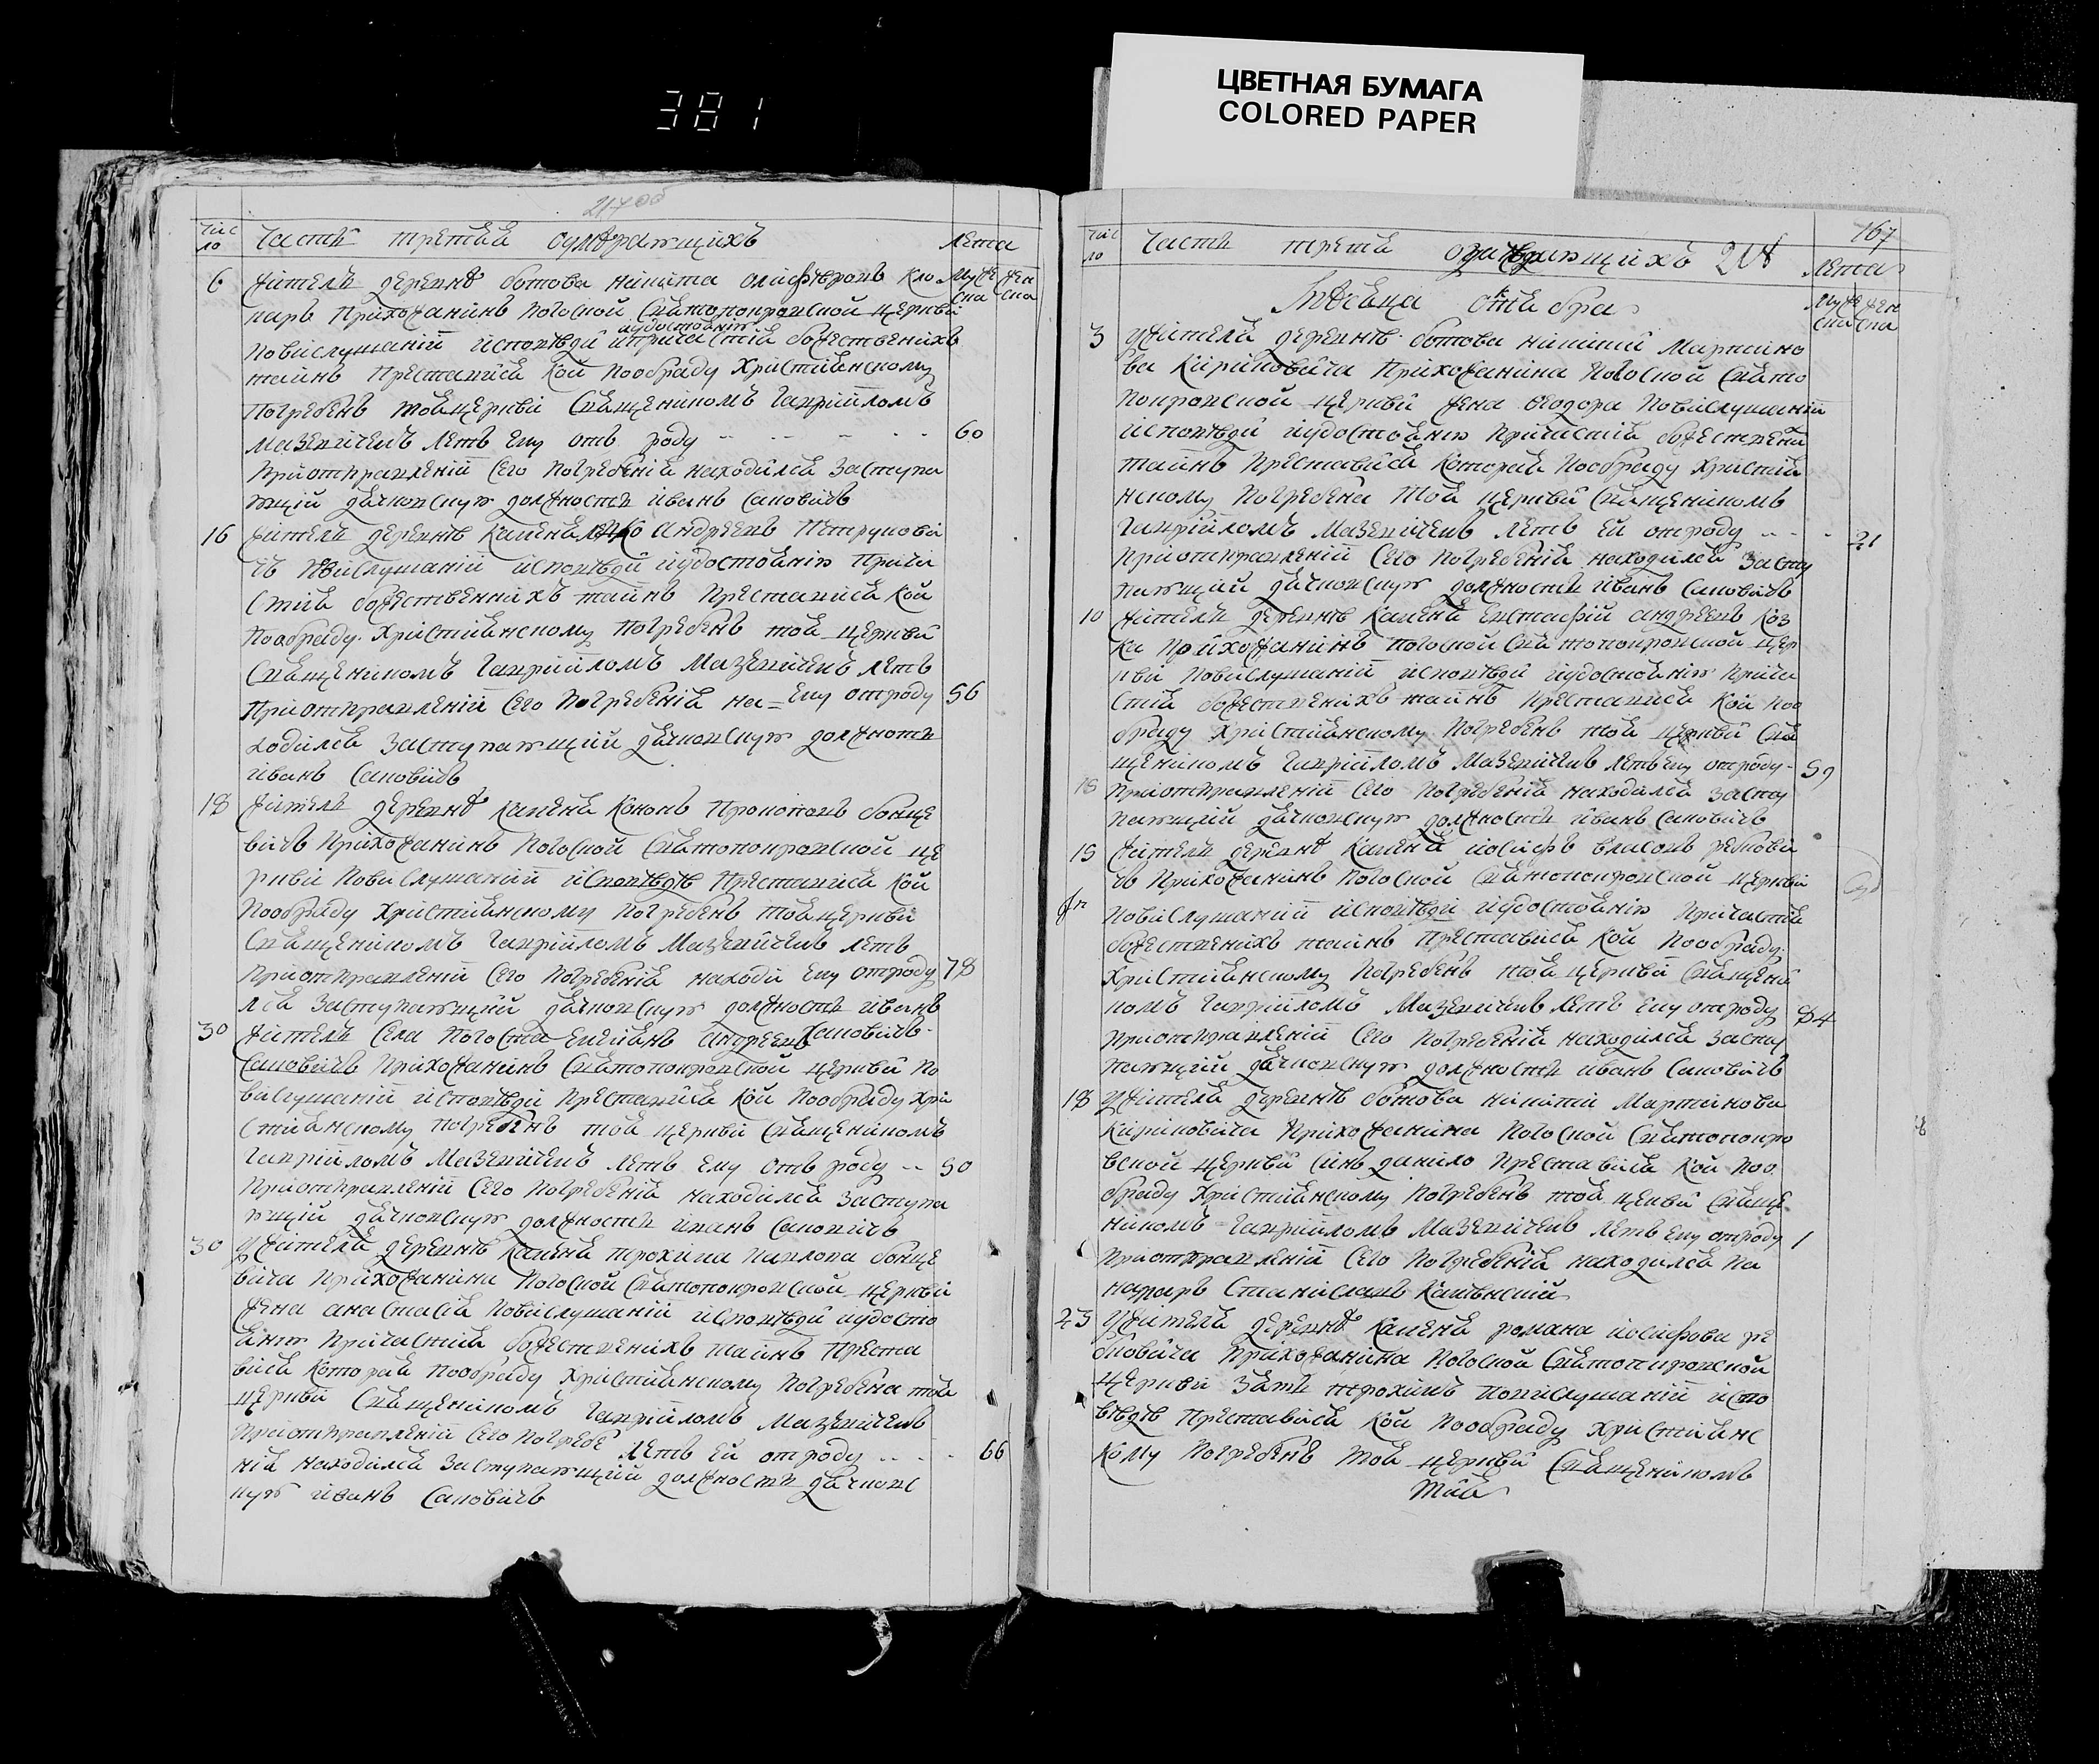 381
ЦВЕТНАЯ БУМАГА
COLORED PAPER
Чис
ло
Часть третяя оумѣрающихъ
Лета
6
Жителъ деревнѣ Ботова Никита Олифѣровъ Кло
муже ска
жен ска
варъ Прихожанинъ Погоской Святопокровской Церкви
Повислушаній исповѣди и причастія божественихъ
иудостоянію
таинъ Преставися Кой Пообряду Христіянскому
Погребенъ тояцеркви Священикомъ Гавріиломъ
Мазевичемъ летъ Ему отъ роду
60
Приотправленіи Сего Погребенія находился Заступа
ющій дячковскую должность Иванъ Саковичъ
16
Житель деревнѣ Каменя Андреевъ Петрукови
чъ Повислушаній исповѣди иудостоянію Прича
стія божественнихъ таинъ Преставися Кой
Пообряду Христіянскому Погребенъ тоя Церкви
Священикомъ Гавріиломъ Мазевичемъ летъ
Приотправленіи Сего Погребенія на= Ему отроду
56
ходился Заступающій дячковскую должность
Иванъ Саковичъ
18
Житель деревнѣ Каменя Кононъ Прокоповъ Бонце
вичъ Прихожанинъ Погоской Святопокровской це
ркви Повислушаній исповѣдѣ Преставися Кой
Пообряду Христіянскому Погребенъ тояцеркви
Священикомъ Гавріиломъ Мазевичемъ летъ
Приотправленіи Сего Погребенія находи Ему отроду
78
лся Заступающій дячковскую должность Иванъ
Саковичъ
30
Жителъ Села Погоста Андреевъ
Саковичъ Прихожанинъ Святопокровской церкви По
вислушаній исповѣди Преставися Кой Пообряду Хри
стіянскому Погребенъ тоя церкви Священикомъ
Гавріиломъ Мазевичемъ летъ Ему отъ роду
50
Приотправленіи Сего Погребенія находился Заступа
ющій дячковскую должность Иванъ Саковичъ
30
Ужителя деревнѣ Каменя Трохима Павлова Бонце
вича Прихожанина Погоской Святопокровской Церкви
Жена Анастасія Повислушаній исповѣди иудосто
янію Причастія божественихъ таинъ Преста
вися Которая Пообряду Христіянскому Погребена тоя
церкви Священикомъ Гавріиломъ Мазевичемъ
Приотправленіи Сего Погребе летъ Ей отроду
66
нія находился Заступающій должность дячковс
кую Иванъ Саковичъ
167
Чис
ло
Часть третя оумѣрающихъ
Лета
Мѣсяца октября
муже ска
жен ска
3
Ужителя деревнѣ Ботова Никиты Мартино
ва Кириковича Прихожанина Погоской Свято
покровской церкви Жена Феодора Повислушаній
исповѣди иудостоянію Причастія божествени
таинъ Преставися Которая Пообряду Христія
нскому Погребена Тоя церкви Священикомъ
Гавріиломъ Мазевичемъ летъ Ей отроду
21
Приотправленіи Сего Погребенія находился Засту
пающій дячковскую должность Иванъ Саковичъ
10
Житель деревнѣ Каменя Евстафій Андреевъ Коз
ка Прихожанинъ Погоской Святопокровской Цер
кви Повислушаній исповѣди иудостоянію Прича
стія божественихъ таинъ Преставися Кой Поо
бряду Христіянскому Погребенъ тоя церкви Свя
щеникомъ Гавріиломъ Мазевичемъ летъ Ему отроду
59
Приотправленіи Сего Погребенія находился Засту
пающій дячковскую должность Иванъ Саковичъ
15
Житель деревнѣ Каменя Иосифъ Власовъ Ребкови
чъ Прихожанинъ Погоской Святопокровской церкви
Повислушаній исповѣди иудостоянію Причастія
божественихъ таинъ Преставися Кой Пообряду
Христіянскому Погребенъ тоя церкви Священи
комъ Гавріиломъ Мазевичемъ летъ Ему отроду
84
Приотправленіи Сего Погребенія находился Засту
пающій дячковскую должность Иванъ Саковичъ
18
Ужителя деревнѣ Ботова Никити Мартинова
Кириковича Прихожанина Погоской Святопокро
вской церкви Синъ Данило Преставися Кой Поо
бряду Христіянскому Погребенъ тоя церкви Свяще
никомъ Гавріиломъ Мазевичемъ летъ Ему отроду
1
Приотправленіи Сего Погребенія находился По
номаръ Станиславъ
23
Ужителя деревнѣ Каменя Романа Иосифова Ре
бковича Прихожанина Погоской Святопокровской
церкви Зять Трохимъ Повислушаній испо
вѣдѣ Преставися Кой Пообряду Христіянс
кому Погребенъ Тоя церкви Священикомъ